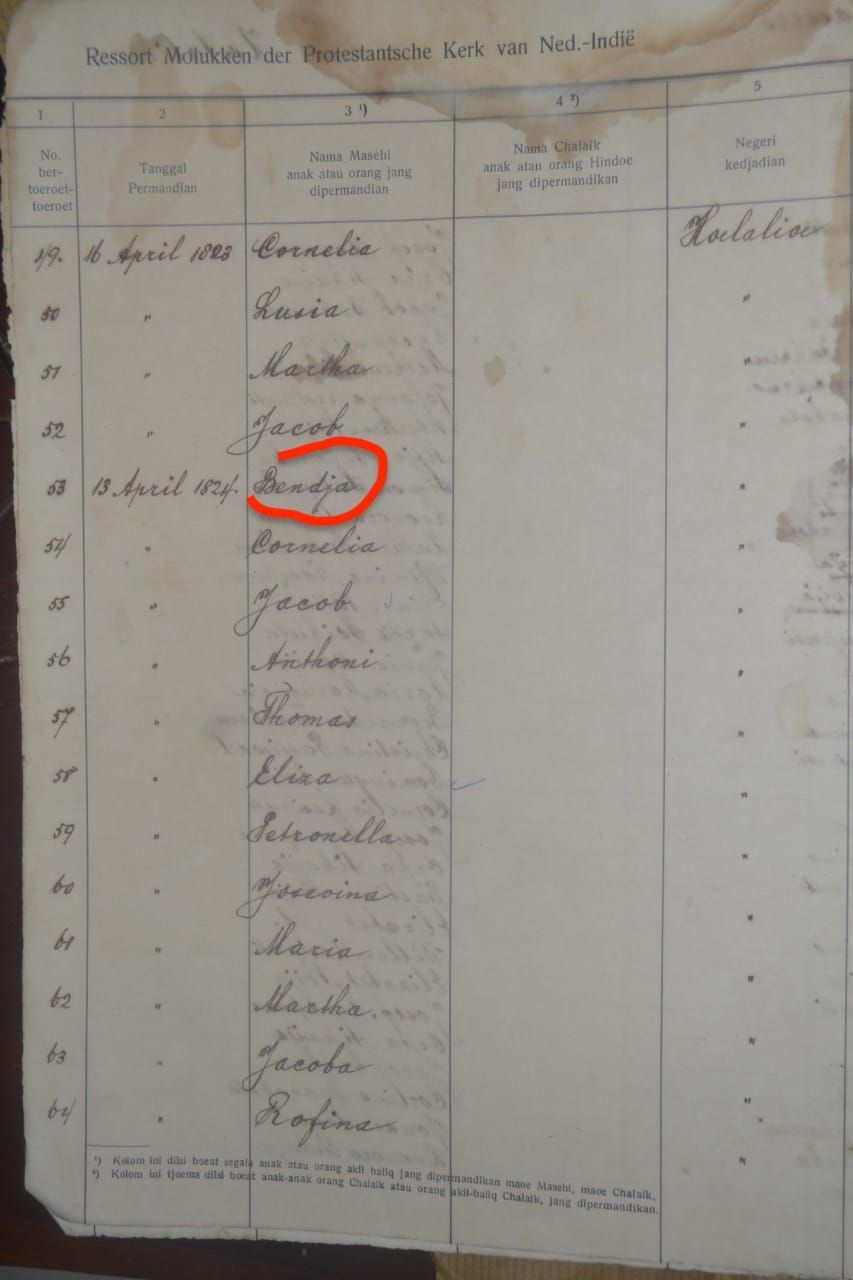 Ressort Molukken der Protestantsche Kerk van Ned.-Indië
1 2 3 ¹) 4 ²) 5
No. ber-toeroet-toeroet
Tanggal Permandian
Nama Masehi anak atau orang jang dipermandian
Nama Chalaik anak atau orang Hindoe jang dipermandikan
Negeri kedjadian
49. 16 April 1823 Cornelia Hoelalioe
50 " Lusia "
51 " Martha "
52 " Jacob "
53 13 April 1824. Bendja "
54 " Cornelia "
55 " Jacob "
56 " Anthoni "
57 " Thomas "
58 " Eliza "
59 " Petronella "
60 " Josevina "
61 " Maria "
62 " Martha. "
63 " Jacoba "
64 " Rofina "
¹) Kolom ini diisi boeat segala anak atau orang akil baliq jang dipermandikan maoe Masehi, maoe Chalaik.
²) Kolom ini tjoema diisi boeat anak-anak orang Chalaik atau orang akil-baliq Chalaik, jang dipermandikan.